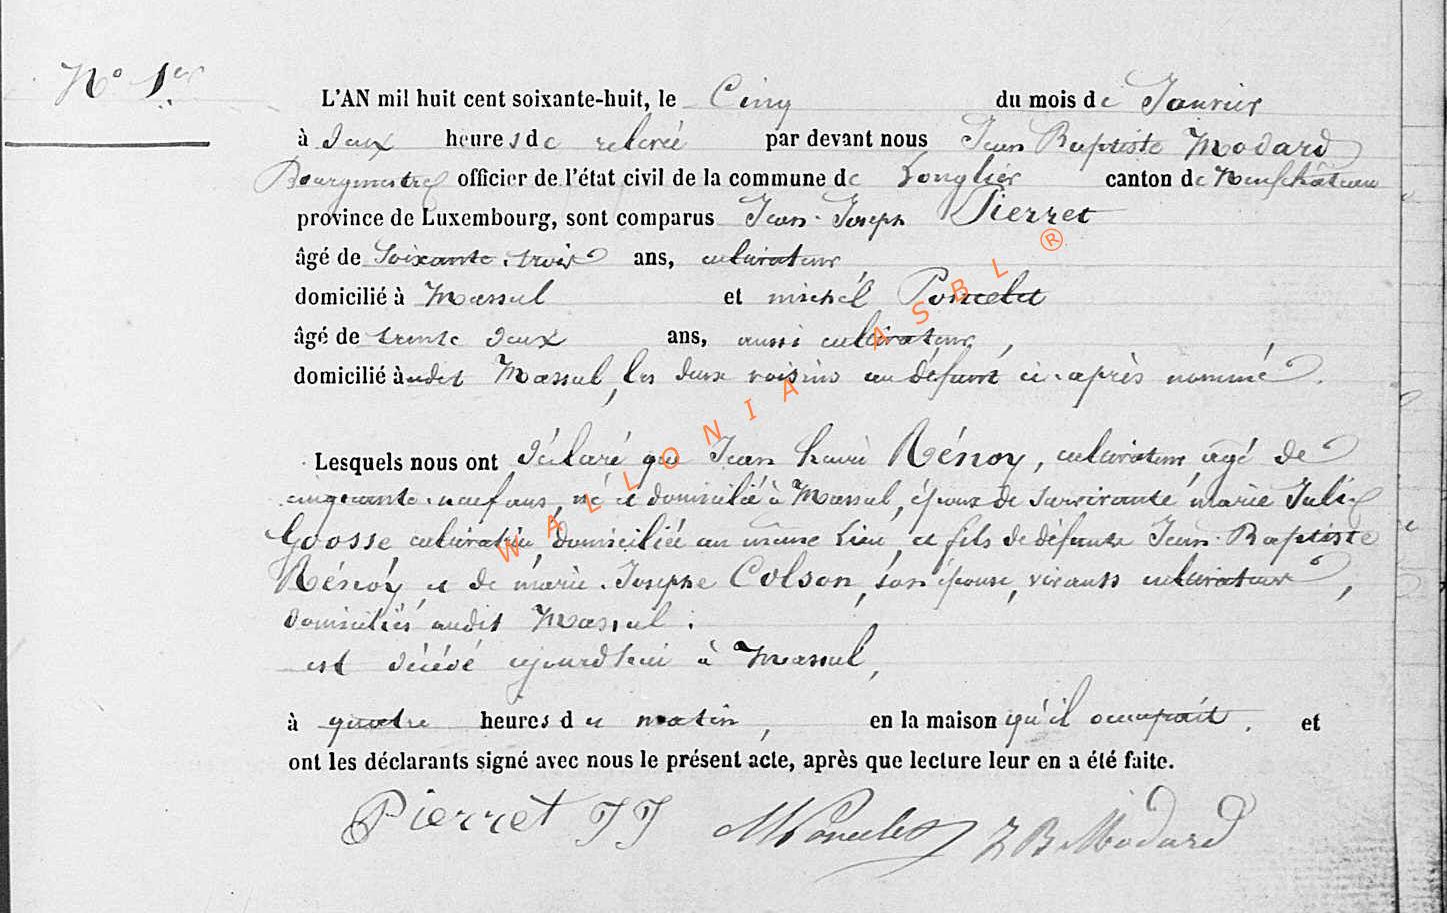 N° 1er
L'AN mil huit cent soixante-huit, le Cinq du mois de Janvier
à deux heures de relevée par devant nous Jean Baptiste Modard
Bourgmestre officier de l'état civil de la commune de Longlier canton de Neufchateau
province de Luxembourg, sont comparus Jean-Joseph Pierret
âgé de Soixante-trois ans, cultivateur,
domicilié à Massul et michel Poncelet
âgé de trente deux ans, aussi cultivateur,
domicilié àudit Massul, les deux voisins au défunt ci-après nommé.
Lesquels nous ont déclaré que Jean henri Rénoy, cultivateur, agé de
cinquante-neuf ans, né et domicilié à Massul, époux de survivante marie Julie
Goosse, cultivatrice, domiciliée au meme Lieu, et fils de défunts Jean-Baptiste
Rénoy, et de marie-Josephe Colson, son épouse, vivants cultivateurs,
domiciliés audit Massul;
est décédé ajourd'hui à Massul,
à quatre heures du matin, en la maison qu'il occupait. et
ont les déclarants signé avec nous le présent acte, après que lecture leur en a été faite.
Pierret JJ M Poncelet J B Modard
WALLONIA ASBL ®